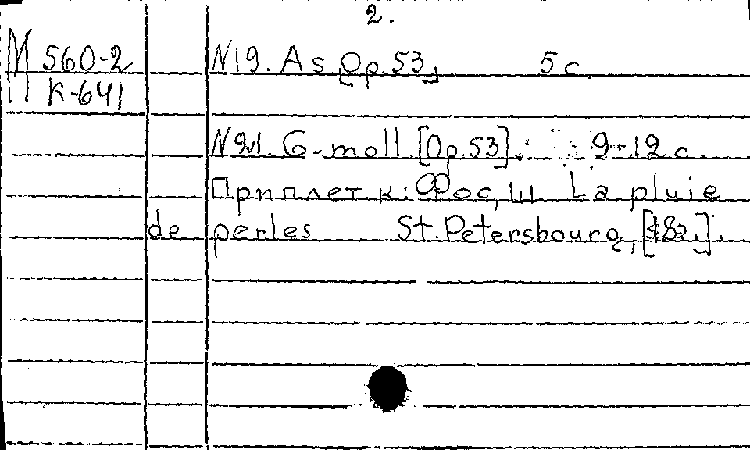 2.
М 560-2 N19. As [Op.53] 5 с.
К-641
N21. G-moll. [Op.53]. 9-12 с.
Приплет к: Фос, Ш. La pluie
de perles St. Petersbourg, [18 ].